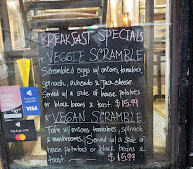 BREAKFAST SPECIALS
* VEGGIE SCRAMBLE
Scrambled eggs w/ onions, tomatoes,
spinach, avocado & jack cheese
Served w/ a side of house potatoes
or black beans & toast. $15.99
* VEGAN SCRAMBLE
Tofu w/ onions tomatoes, spinach
& mushrooms. Served w/ a side of
house potatoes or black beans &
toast $15.99
VISA